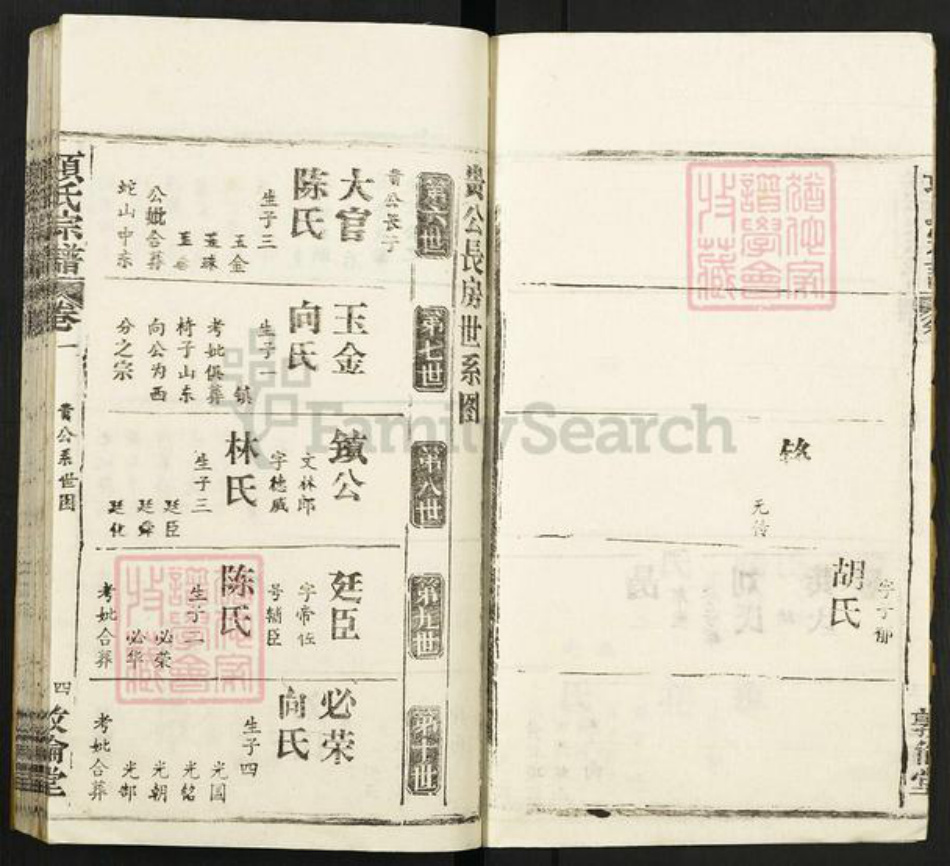 钦
无传
字于那
胡氏
敦伦堂
贵公長房世系图
第六世
贵公長子
大官
陈氏
生子三
玉金
玉珠
公妣合葬
蛇山中东
第七世
玉金
向氏
生子一
镇
考妣俱葬
椅子山东
向公为西
分之宗
第八世
镇公
文林郎
字德威
林氏
生子三
廷臣
廷舜
廷化
第九世
廷臣
字帝佐
号辅臣
陈氏
生子二
必荣
必华
考妣合葬
第十世
必荣
向氏
生子四
光国
光铭
光朝
光郜
考妣合葬
項氏宗譜
卷一
贵公系世图
四
敦倫堂
FamilySearch